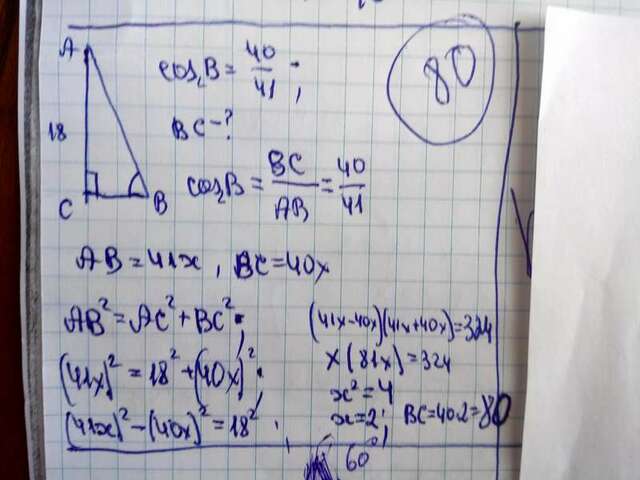 A
18
C
B
cos B = 40/41 ;
BC - ?
cos B = BC/AB = 40/41
80
AB = 41x , BC = 40x
AB² = AC² + BC² ;
(41x)² = 18² + (40x)² ;
(41x)² - (40x)² = 18² ;
(41x-40x)(41x+40x)=324
x(81x)=324
x²=4
x=2 ; BC=40·2=80
60°